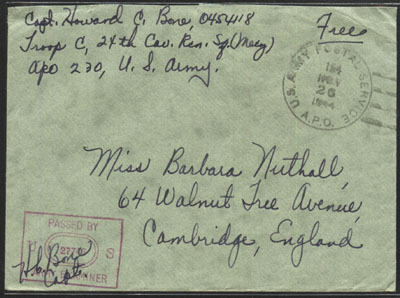 Capt. Howard C. Bone, 045418
Troop C, 24th Cav. Rcn. Sq. (Mecz)
APO 230, U. S. Army.
Free
U.S. ARMY POSTAL SERVICE
26
1944
A.P.O.
Miss Barbara Nuthall,
64 Walnut Tree Avenue,
Cambridge, England
PASSED BY
S
H.C. Bone
Capt.